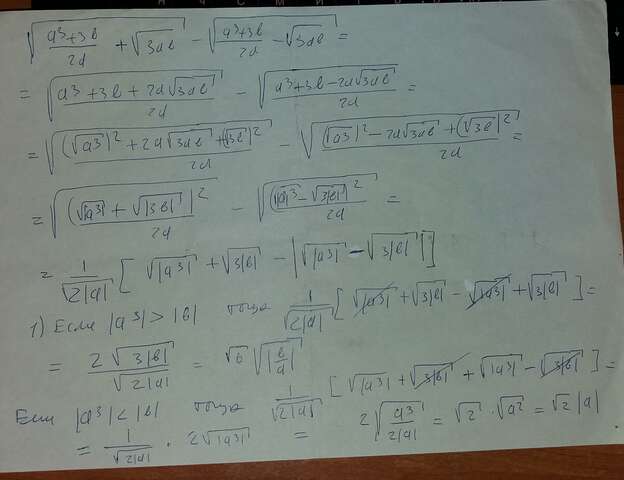 √((a³+3b)/2a + √(3ab)) − √((a³+3b)/2a − √(3ab)) =
= √((a³+3b+2a√(3ab))/2a) − √((a³+3b−2a√(3ab))/2a) =
= √(((√a³)²+2a√(3ab)+(√3b)²)/2a) − √(((√a³)²−2a√(3ab)+(√3b)²)/2a) =
= √((√|a³|+√|3b|)²/2a) − √((√|a³|−√3|b|)²/2a) =
= 1/√(2|a|) [√|a³|+√(3|b|) − |√|a³|−√(3|b|)|]
1) Если |a³| > |b| тогда 1/√(2|a|) [√|a³|+√(3|b|)−√|a³|+√(3|b|)] =
= 2√(3|b|)/√(2|a|) = √6 √|b/a|
Если |a³| < |b| тогда 1/√(2|a|) [√|a³|+√(3|b|)+√|a³|−√(3|b|)] =
= 1/√(2|a|) · 2√|a³| = 2√(a³/2|a|) = √2 · √a² = √2 |a|